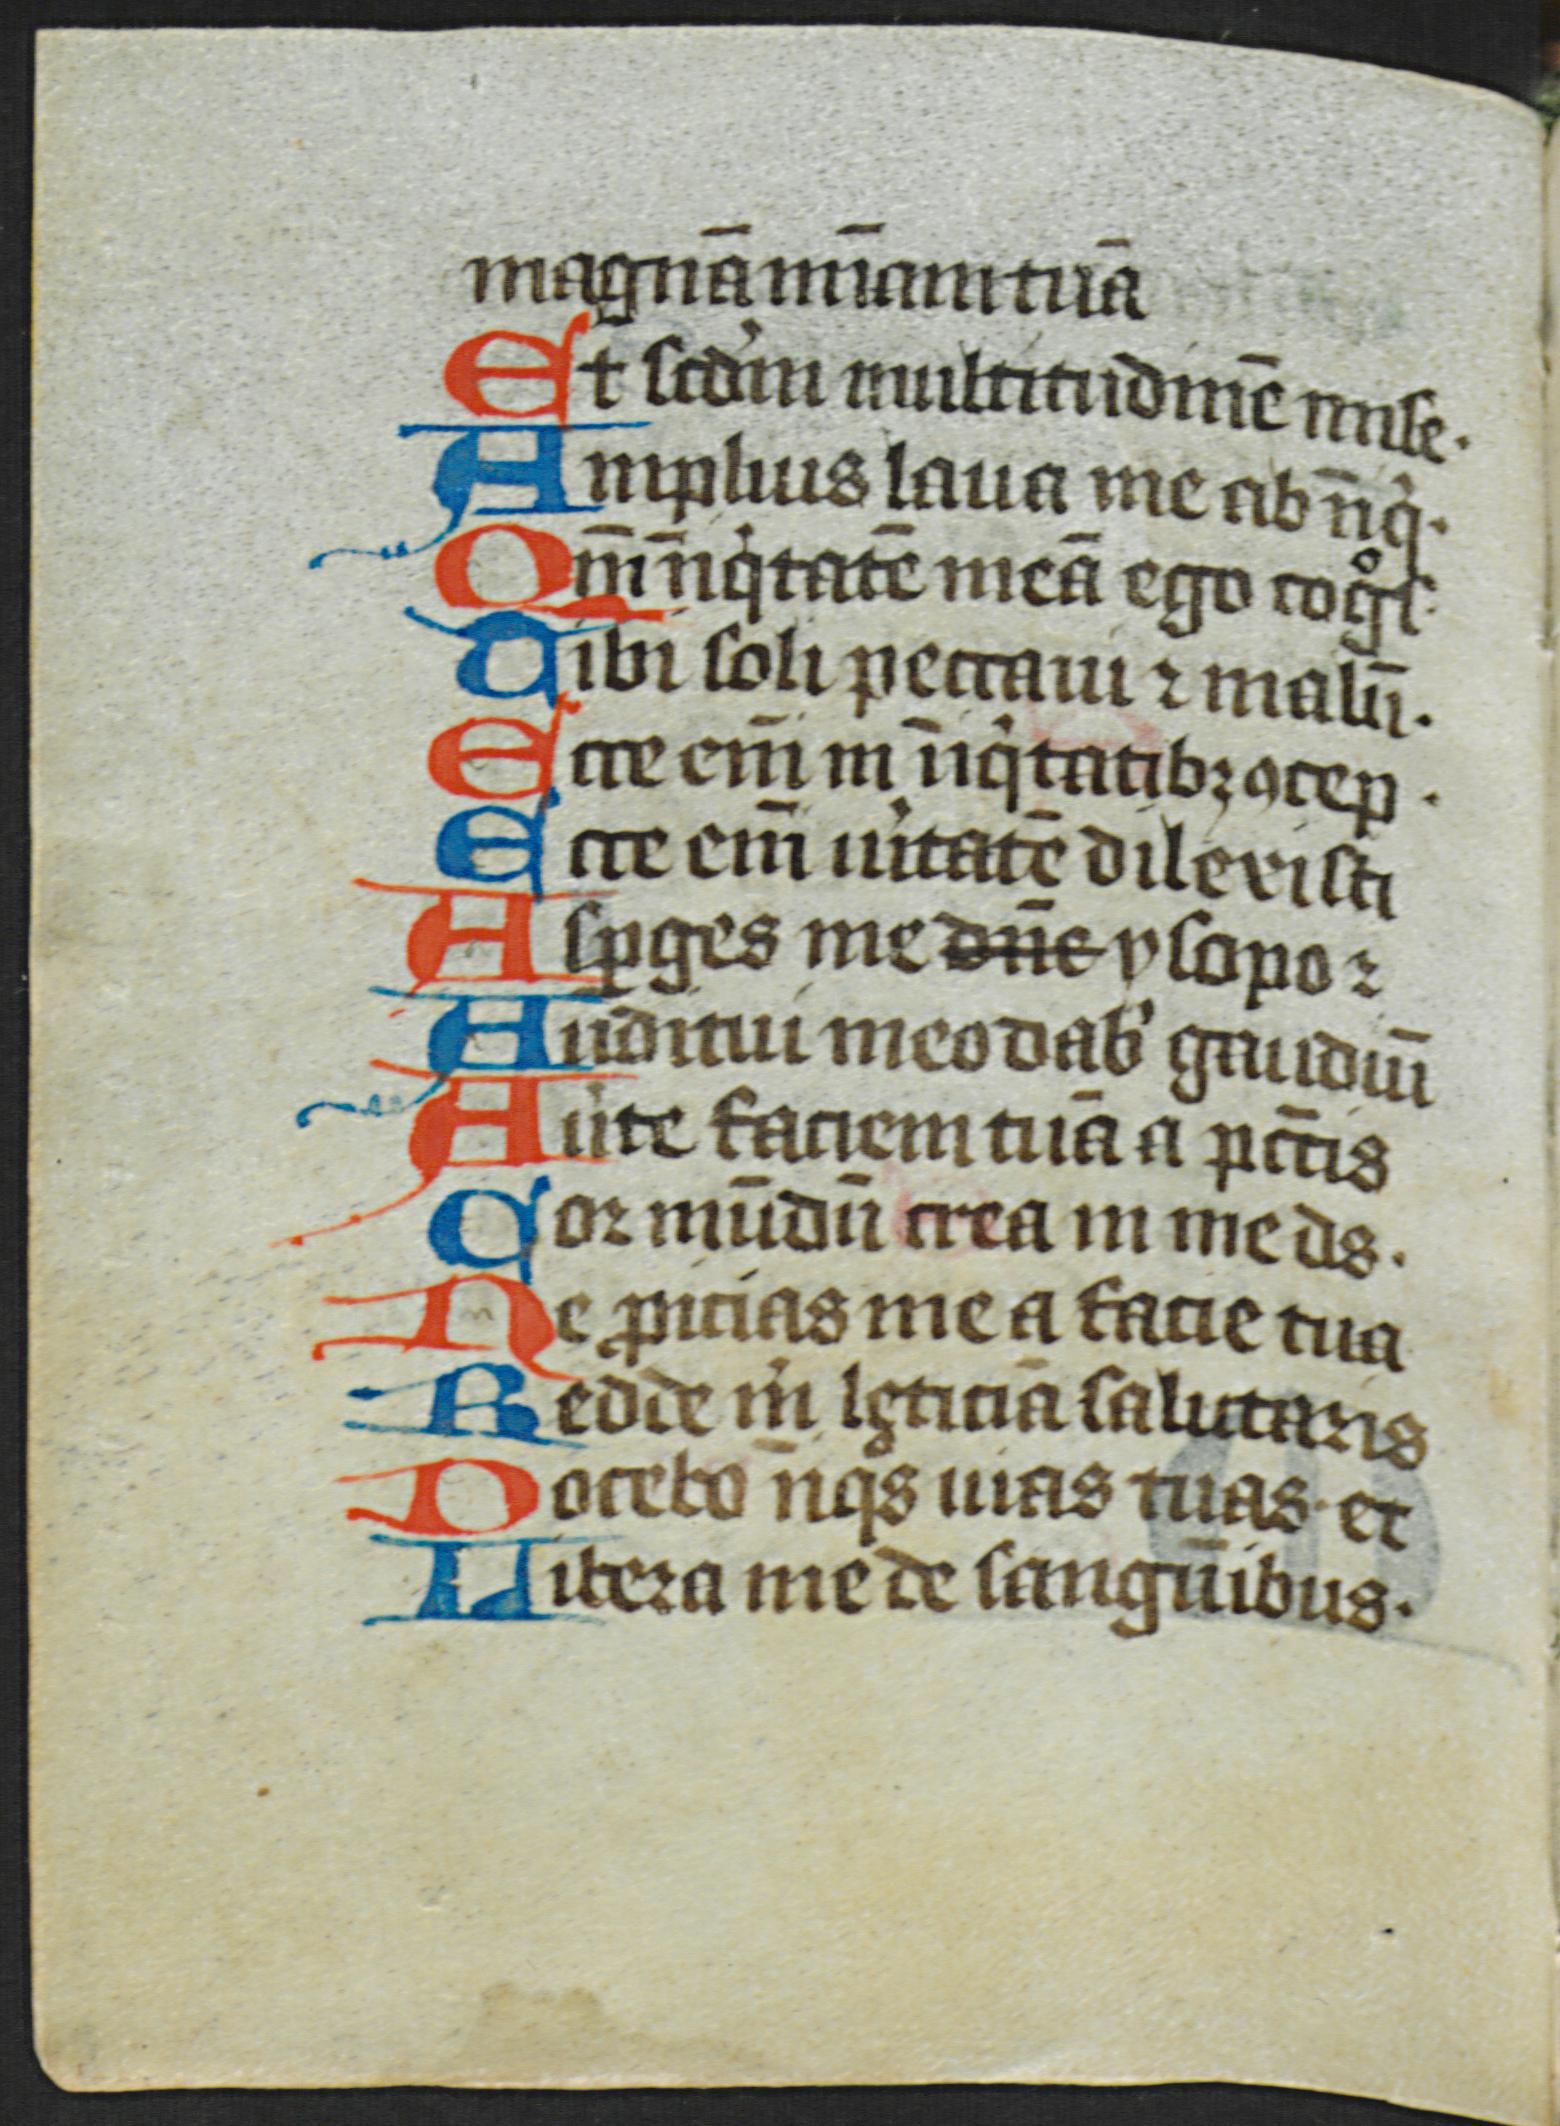 magnā mīam tuā
Et scd'm multitudinē mise.
Amplius laua me ab īiq̇.
Qm̄ īiq̇tatē meā ego cogͦs.
Tibi soli peccaui ⁊ malū.
Ecce em̄ in īiq̇tatibꝫ ꝯcep.
Ecce em̄ u'itatē dilexisti
Aspges me dn̄e ysopo ⁊
Auditui meo dab' gaudiū
Au'te faciem tuā a pctīs
Cor mūdū crea in me ds.
Ne ꝓicias me a facie tua
Redde m' lęticiā salutaris
Docebo īiqͦs uias tuas et
Libera me de sanguībus.